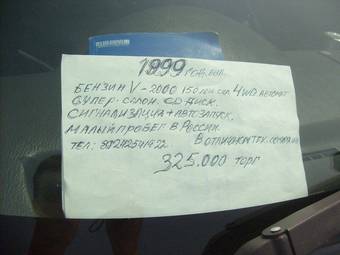 1999 год. вып.
БЕНЗИН V-2000 150 4WD АВТОМАТ
СУПЕР-САЛОН. CD ДИСК.
СИГНАЛИЗАЦИЯ + АВТОЗАПУСК.
МАЛЫЙ ПРОБЕГ В РОССИИ.
В ОТЛИЧНОМ ТЕХ.
ТЕЛ:
325.000 ТОРГ